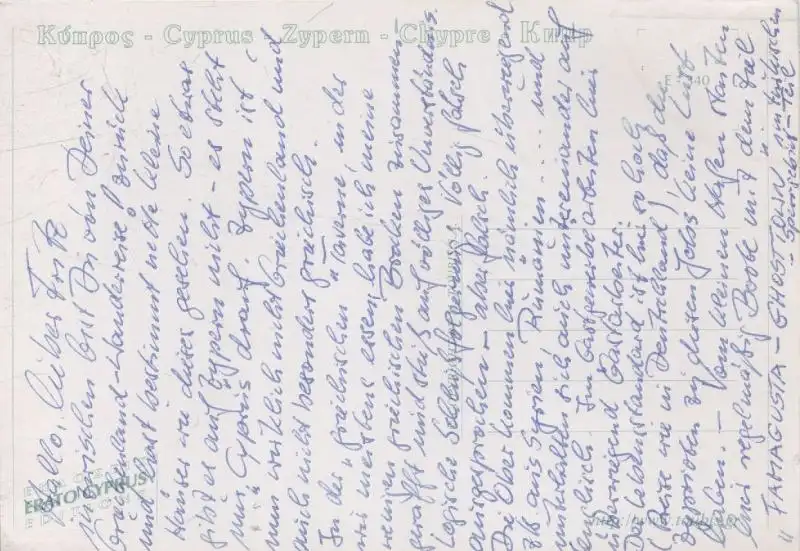 Κύπρος - Cyprus - Zypern - Chypre - Кипр
E - 340
Hallo, lieber Fritz
Inzwischen bist Du von Deiner
Griechenland-Wanderreise zurück
und hast bestimmt nette kleine
Häuser wie dieses gesehen. So etwas
gibt es auf Zypern nicht - es steht
nur "Cyprus" drauf. Zypern ist
nun wirklich nicht Griechenland und
auch nicht besonders griechisch.
In der "griechischen" Taverne, in der
wir meistens essen, habe ich meine
wenigen griechischen Brocken zusammen
gerafft und stieß auf völliges Unverständnis.
Logische Schlußfolgerung: Völlig falsch
ausgesprochen - aber falsch.
Die Ober kommen hier nämlich überwiegend
zB. aus Syrien, Rumänien .... und
unterhalten sich auch untereinander auf
Englisch. Im Gastgewerbe arbeiten hier
überwiegend Gastarbeiter.
Der Lebensstandard ist hier so hoch
(Preise wie in Deutschland), daß die
Zyprioten zu diesen Jobs keine Lust
haben. - Vom kleinen Hafen starten
hier regelmäßig Boote mit dem Ziel
FAMAGUSTA - GHOST TOWN im türkischen
Teil
ERATO CYPRUS
EDITIONS
http://www.toubis.gr